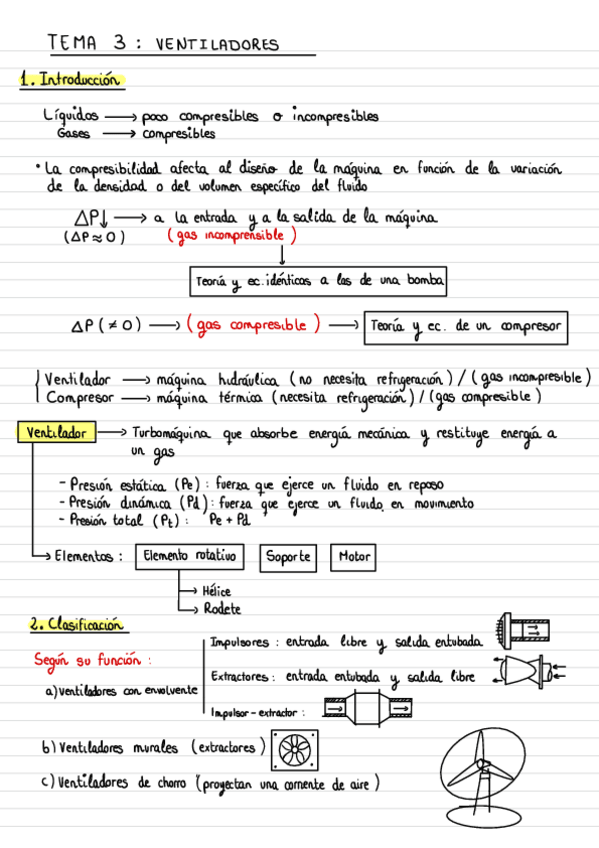 TEMA 3: VENTILADORES
1. Introducción
Líquidos → poco compresibles o incompresibles
Gases → compresibles
• La compresibilidad afecta al diseño de la máquina en función de la variación
de la densidad o del volumen específico del fluido
ΔP↓ → a la entrada y a la salida de la máquina
(ΔP≈0) (gas incomprensible)
Teoría y ec. idénticas a las de una bomba
ΔP (≠0) → (gas compresible) → Teoría y ec. de un compresor
Ventilador → máquina hidráulica (no necesita refrigeración) / (gas incompresible)
Compresor → máquina térmica (necesita refrigeración) / (gas compresible)
Ventilador → Turbomáquina que absorbe energía mecánica y restituye energía a
un gas
- Presión estática (Pe): fuerza que ejerce un fluido en reposo
- Presión dinámica (Pd): fuerza que ejerce un fluido en movimiento
- Presión total (Pt): Pe + Pd
→ Elementos: Elemento rotativo Soporte Motor
→ Hélice
→ Rodete
2. Clasificación
Según su función:
a) Ventiladores con envolvente
Impulsores: entrada libre y salida entubada
Extractores: entrada entubada y salida libre
Impulsor-extractor:
b) Ventiladores murales (extractores)
c) Ventiladores de chorro (proyectan una corriente de aire)